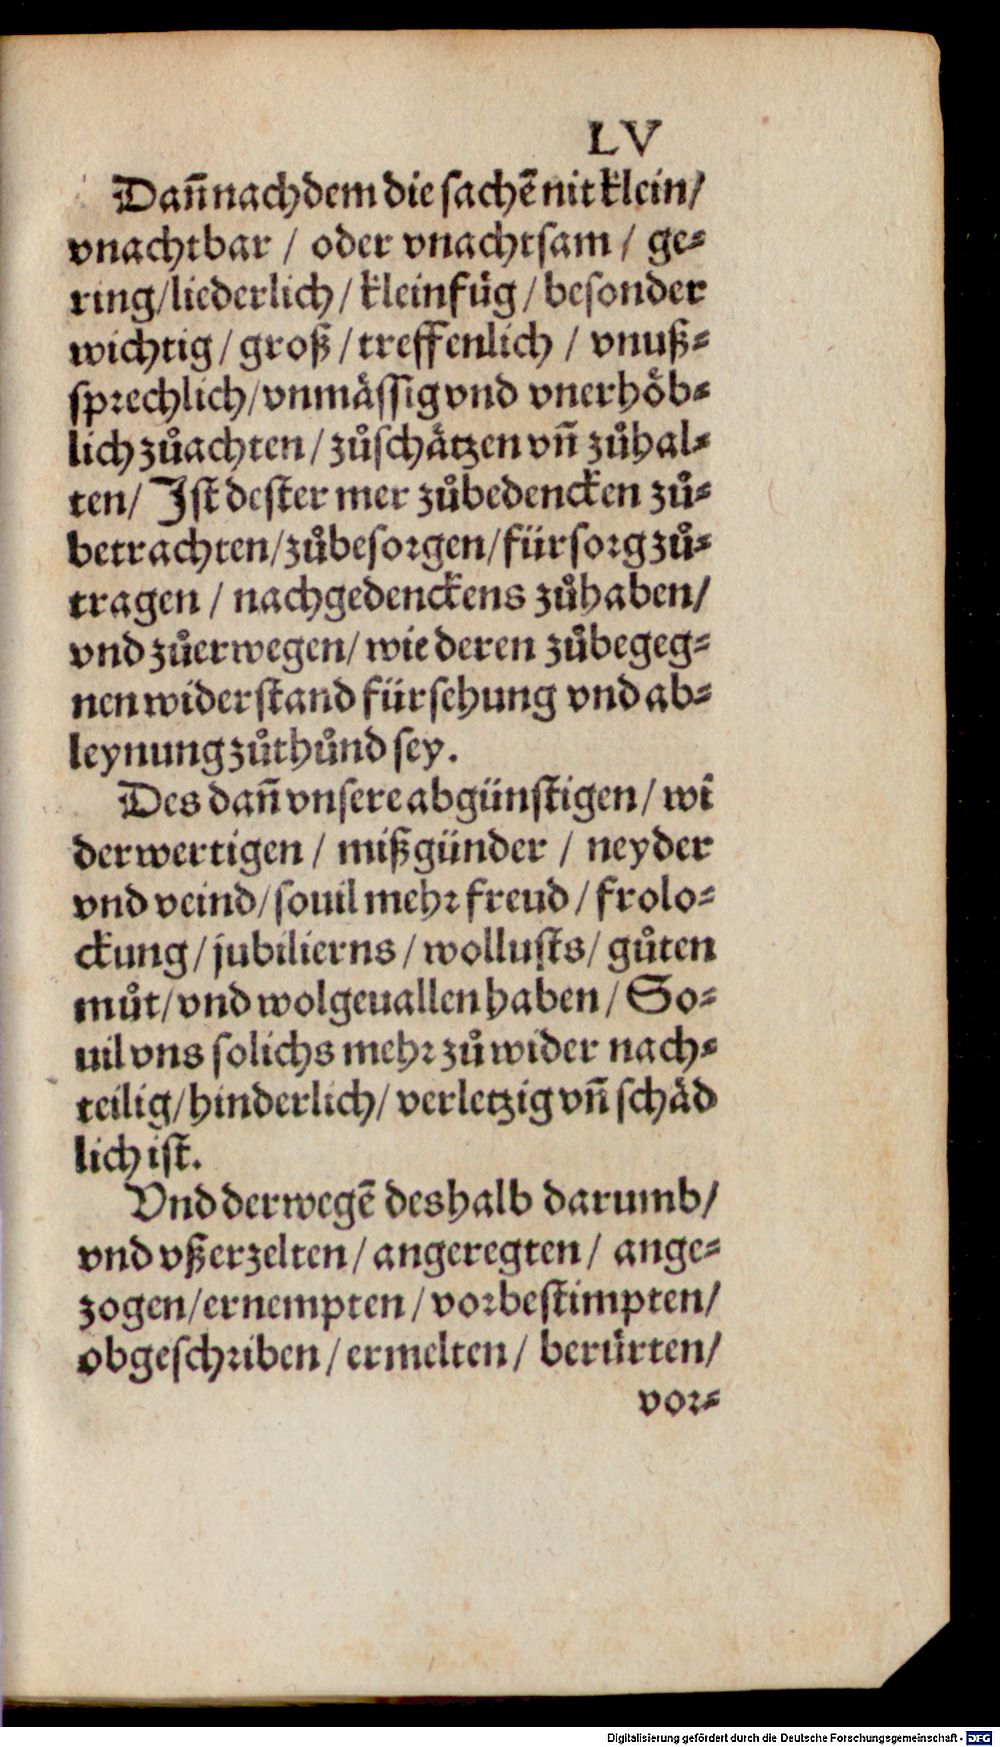 LV
Dan̄ nachdem die sachē nit klein/
vnachtbar / oder vnachtsam / ge⸗
ring/liederlich/ kleinfüg / besonder
wichtig / groß / treffenlich / vnuß⸗
sprechlich/vnmässig vnd vnerhöb⸗
lich zůachten / zůschätzen vn̄ zůhal⸗
ten/ Ist dester mer zůbedencken zů⸗
betrachten/zůbesorgen/fürsorg zů⸗
tragen / nachgedenckens zůhaben/
vnd zůerwegen/ wie deren zůbegeg⸗
nen widerstand fürsehung vnd ab⸗
leynung zůthůnd sey.
Des dan̄ vnsere abgünstigen/ wi
derwertigen / mißgünder / neyder
vnd veind/ souil mehr freud / frolo⸗
ckung / jubilierns / wollusts/ gůten
můt/ vnd wolgeuallen haben / So⸗
uil vns solichs mehr zůwider nach⸗
teilig/hinderlich/ verletzig vn̄ schäd
lich ist.
Vnd derwegē deshalb darumb/
vnd vßerzelten / angeregten / ange⸗
zogen/ernempten / vorbestimpten/
obgeschriben / ermelten / berürten/
vor⸗
Digitalisierung gefördert durch die Deutsche Forschungsgemeinschaft - DFG